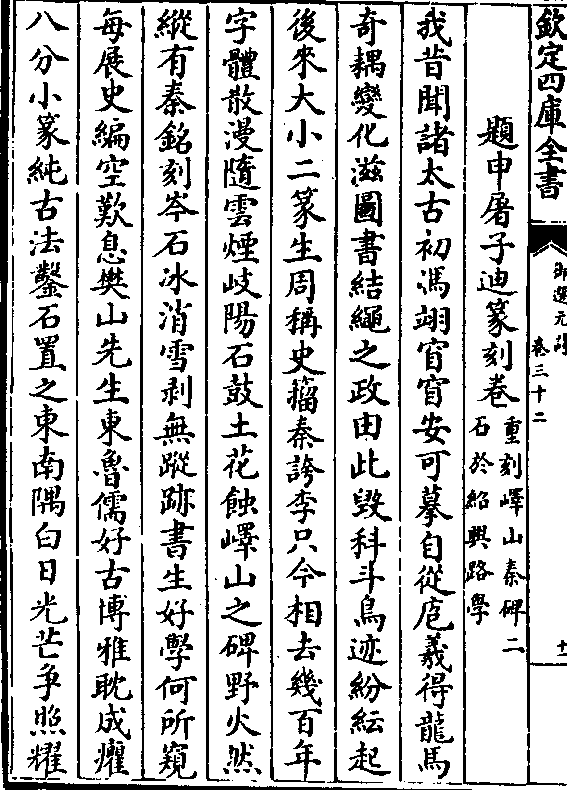 欽定四庫全書
御選元詩 卷三十二
十一
題申屠子迪篆刻卷 重刻嶧山秦碑二
石於紹興路學
我昔聞諸太古初馮翊窅窅安可摹自從庖羲得龍馬
奇耦變化滋圖書結繩之政由此毀科斗鳥迹紛紜起
後來大小二篆生周稱史籀秦誇李只今相去幾百年
字體散漫隨雲煙岐陽石鼓土花蝕嶧山之碑野火然
縱有秦銘刻岑石冰消雪剥無蹤跡書生好學何所窺
每展史編空歎息樊山先生東魯儒好古博雅耽成癯
八分小篆純古法鑿石置之東南隅白日光芒爭照耀